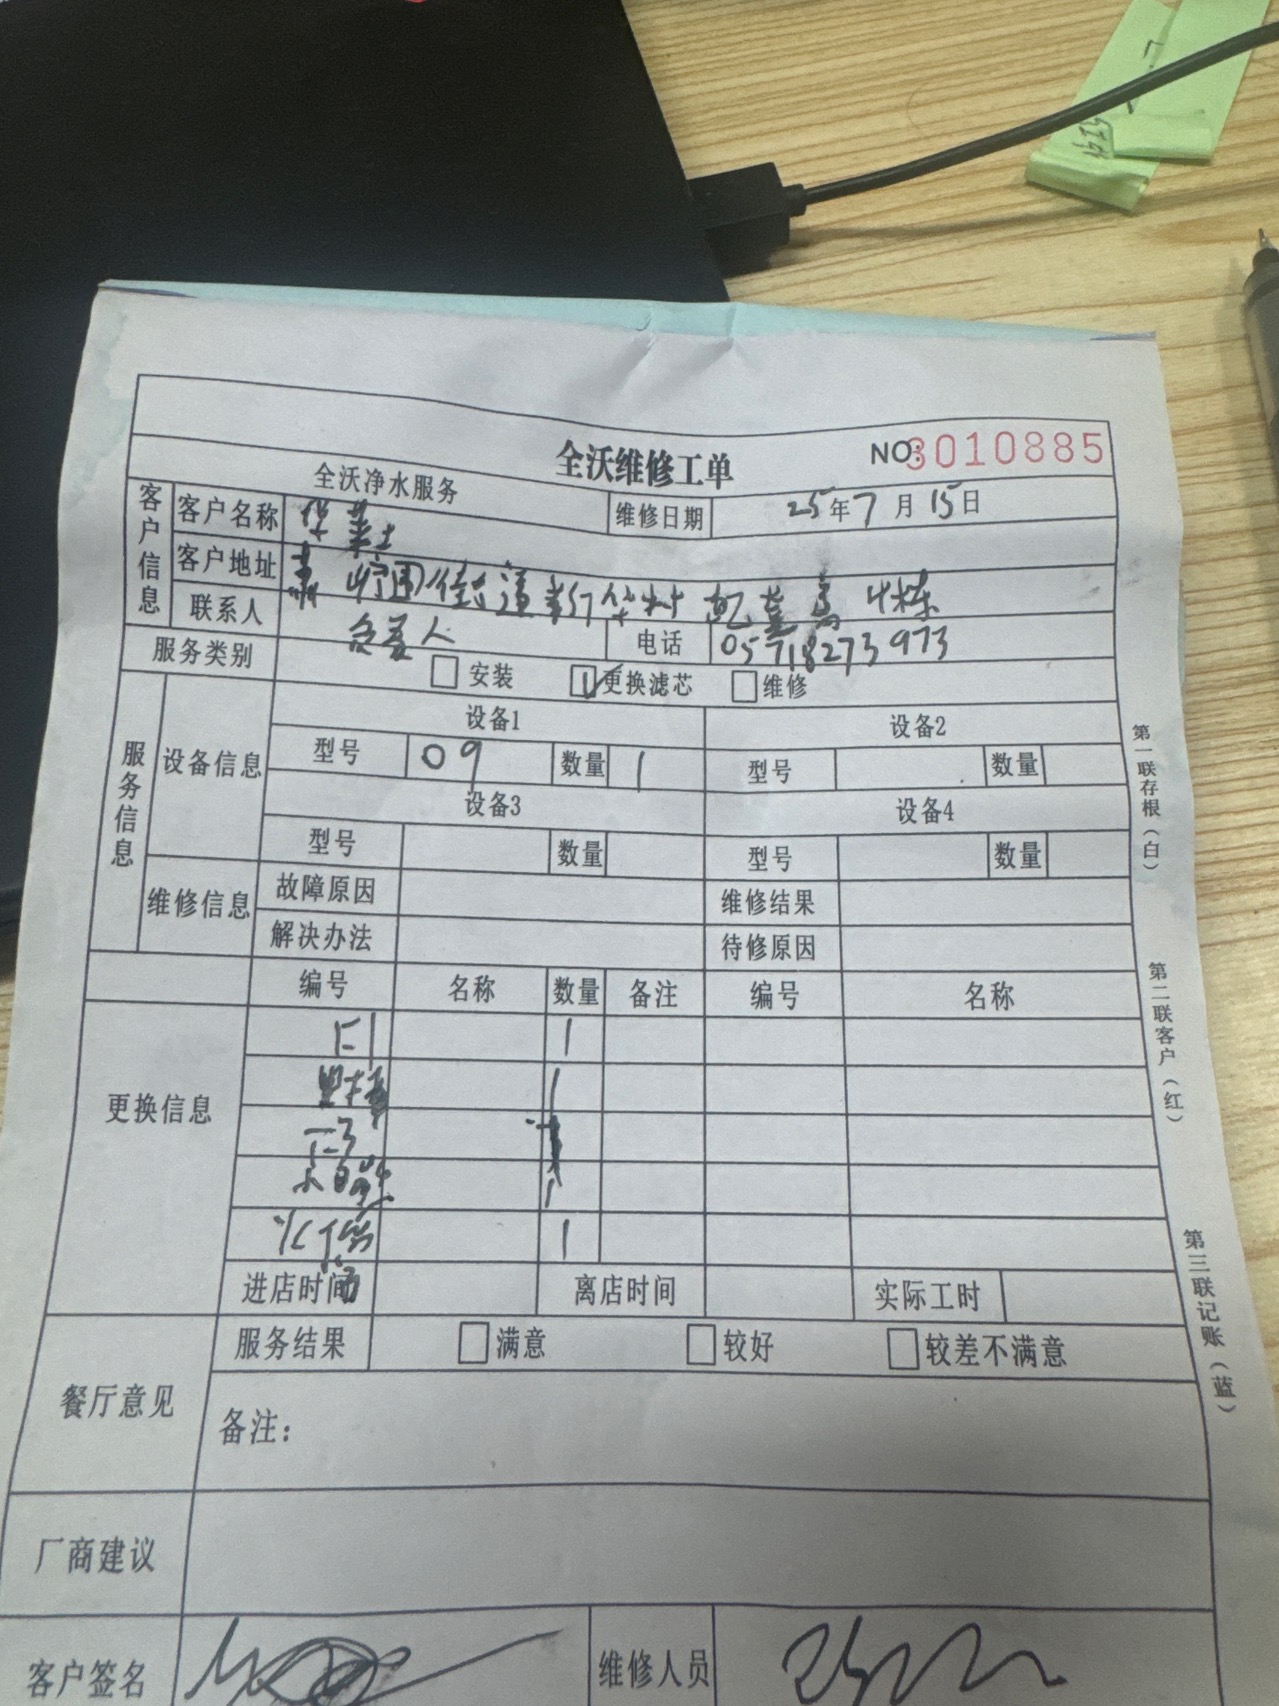 全沃维修工单 NO:3010885
全沃净水服务 维修日期 25年7月15日
客户信息
客户名称
客户地址 街道 村
联系人 负责人 电话 05718273973
服务类别 安装 更换滤芯 维修
服务信息
设备信息
设备1 设备2
型号 09 数量 1 型号 数量
设备3 设备4
型号 数量 型号 数量
维修信息
故障原因 维修结果
解决办法 待修原因
更换信息
编号 名称 数量 备注 编号 名称
1
1
1
进店时间 离店时间 实际工时
餐厅意见
服务结果 满意 较好 较差不满意
备注:
厂商建议
客户签名 维修人员
第一联存根(白)
第二联客户(红)
第三联记账(蓝)